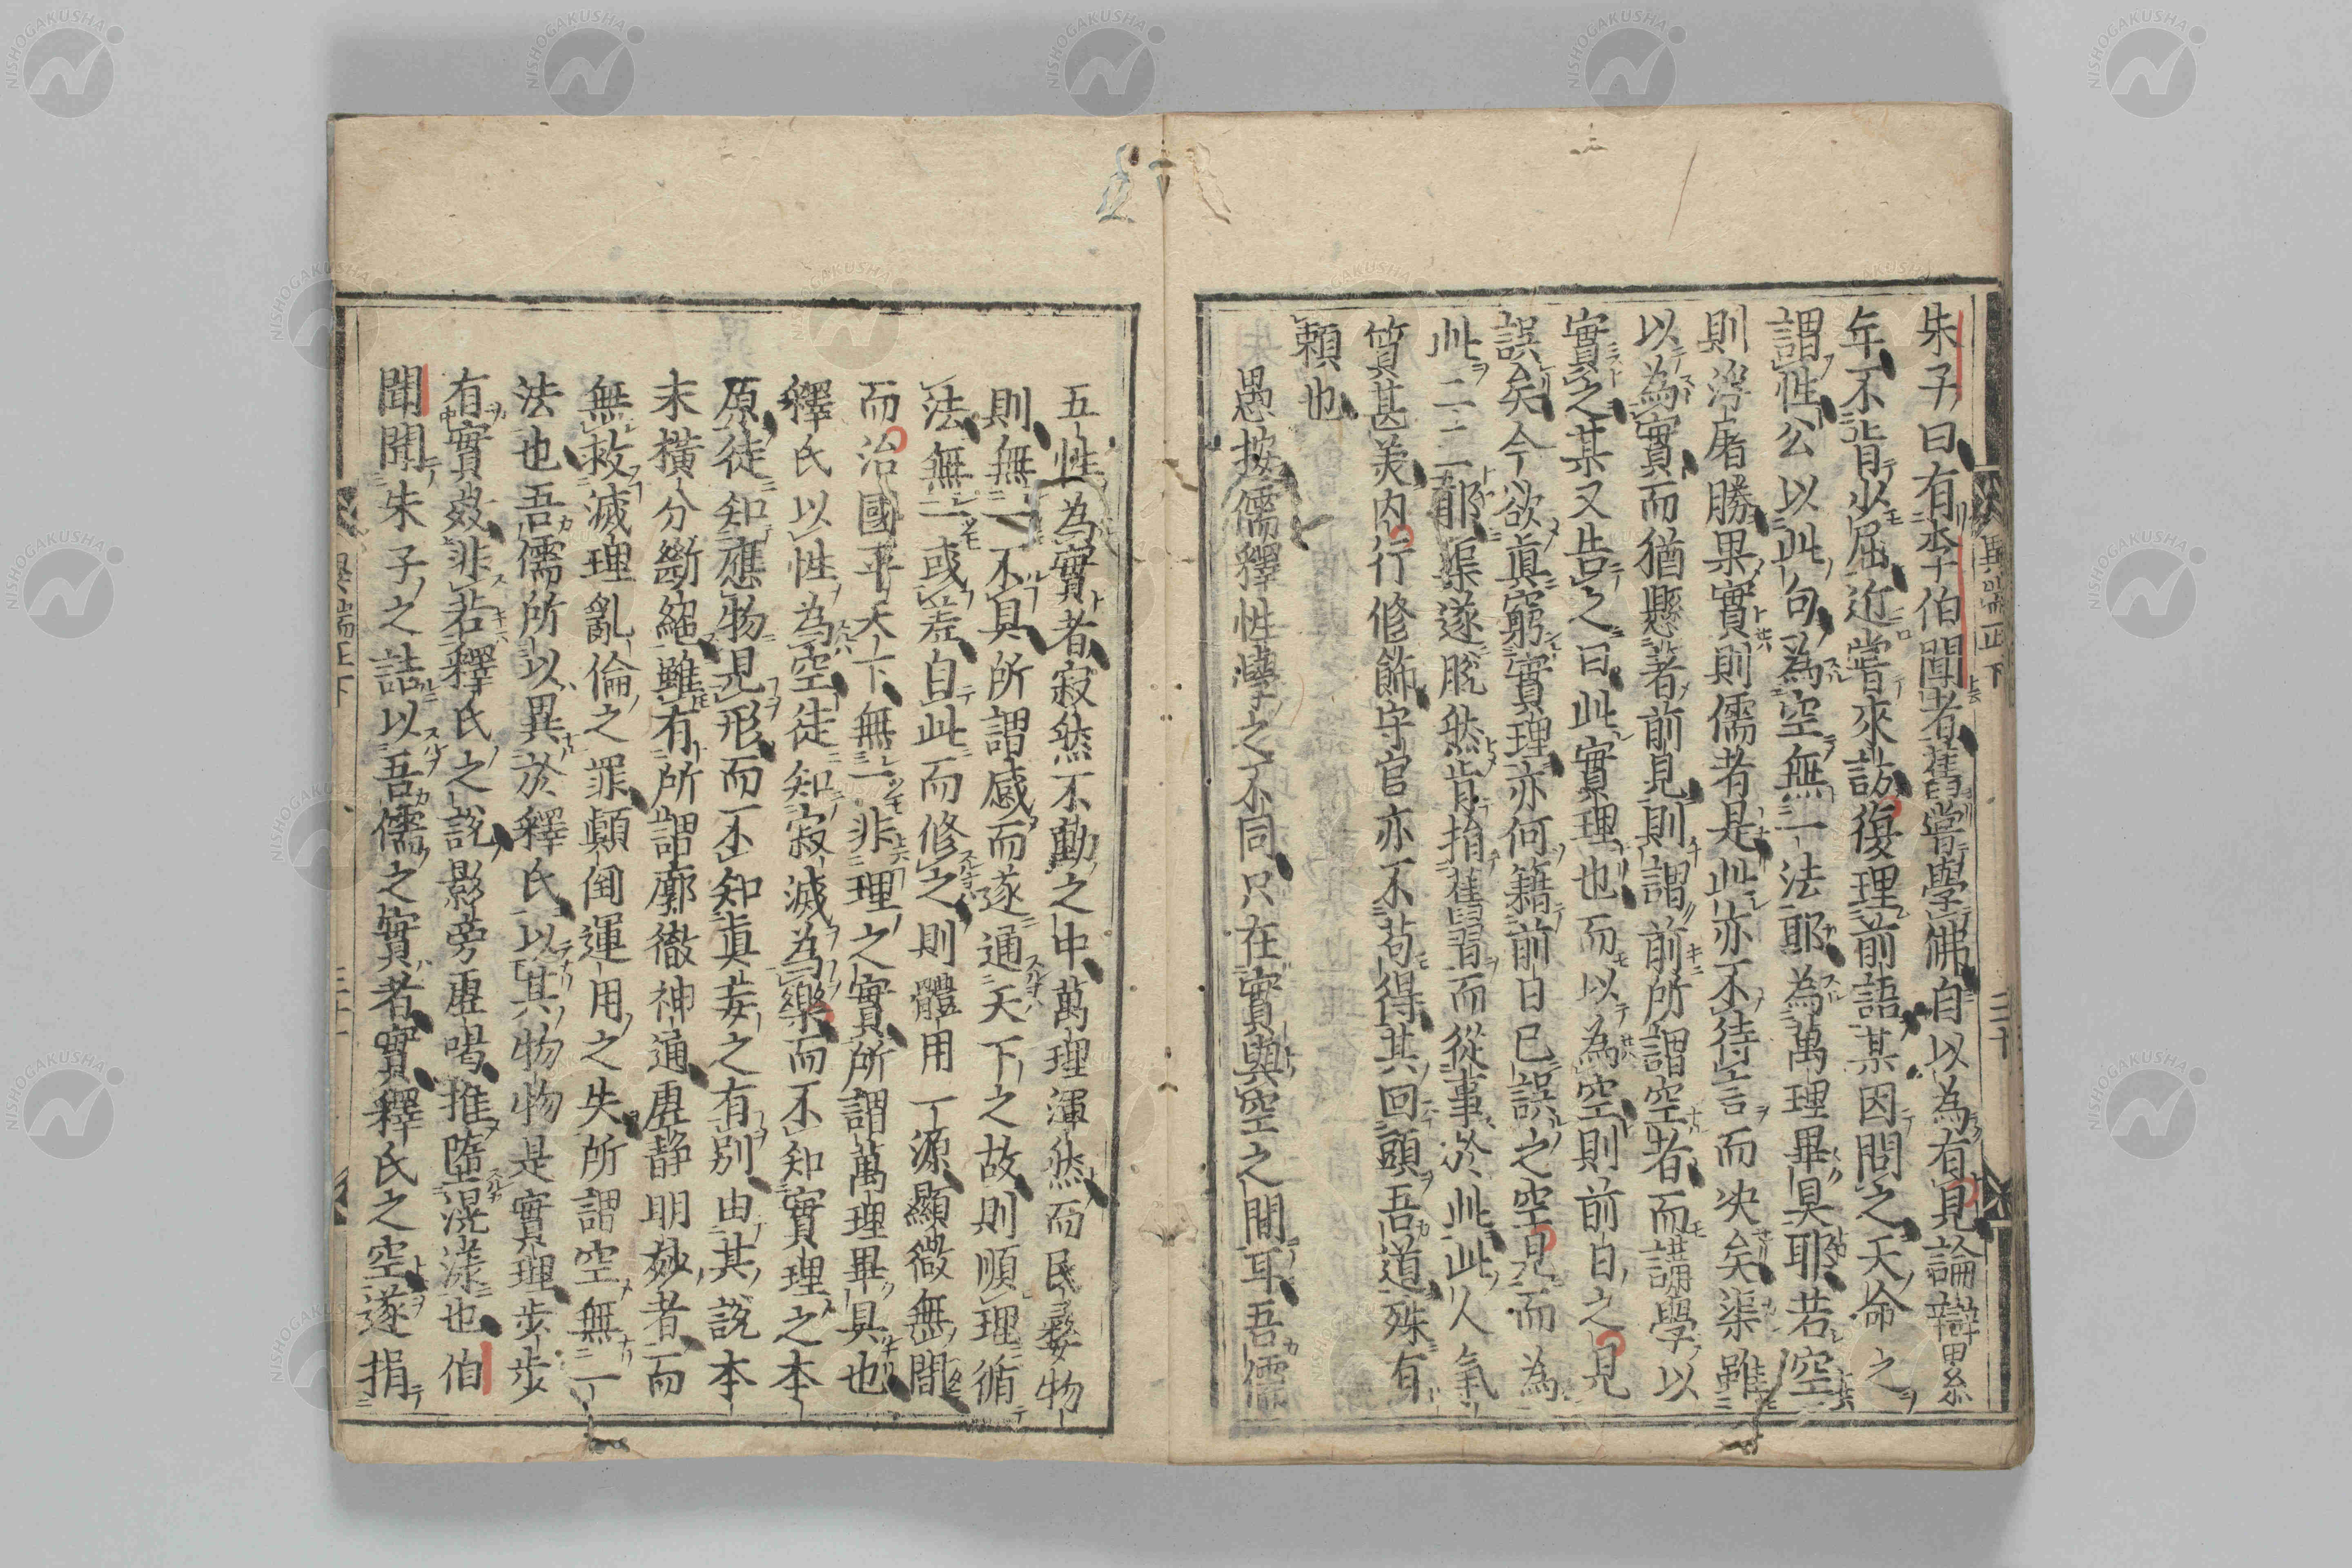 朱子曰有李伯聞者舊嘗學佛自以為有見論辯累
年不肯少屈近嘗來訪復理前語某因問之天命之
謂性公以此句為空無一法耶為萬理畢具耶若空
則浮屠勝果實則儒者是此亦不待言而決矣渠雖
以為實而猶懸著前見則謂前所謂空者而講學以
實之某又告之曰此實理也而以為空則前日之見
誤矣今欲真窮實理亦何籍前日已誤之空見而為
此二二耶渠遂脫然肯捐舊習而從事於此此人氣
質甚美内行修飾守官亦不苟得其回頭吾道殊有
賴也
愚按儒釋性學之不同只在實與空之間耳吾儒
異端正下
三十
五性為實者寂然不動之中萬理渾然而民彝物
則無一不具所謂感而遂通天下之故則順理循
法無二或差自此而修之則體用一源顯微無間
而治國平天下無一非理之實所謂萬理畢具也
釋氏以性為空徒知寂滅為樂而不知實理之本
原徒知應物見形而不知真妄之有別由其說本
末橫分斷絕雖有所謂廓徹神通虛静明妙者而
無救滅理亂倫之罪顛倒運用之失所謂空無一
法也吾儒所以異於釋氏以其物物是實理步步
有實效非若釋氏之說影旁虛喝推墮滉漾也伯
聞聞朱子之詰以吾儒之實者實釋氏之空遂捐
異端正下
三十一
NISHOGAKUSHA